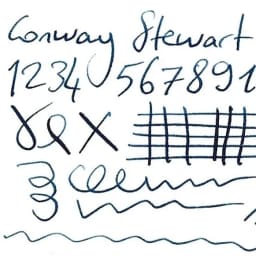 Conway Stewart
1234 567891